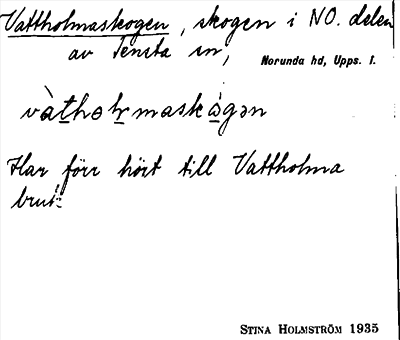 Vattholmaskogen, skogen i NO. delen
av Tensta sn,
Norunda hd, Upps. l.
vàtholmaskògən
Har förr hört till Vattholma
bruk.
STINA HOLMSTRÖM 1935